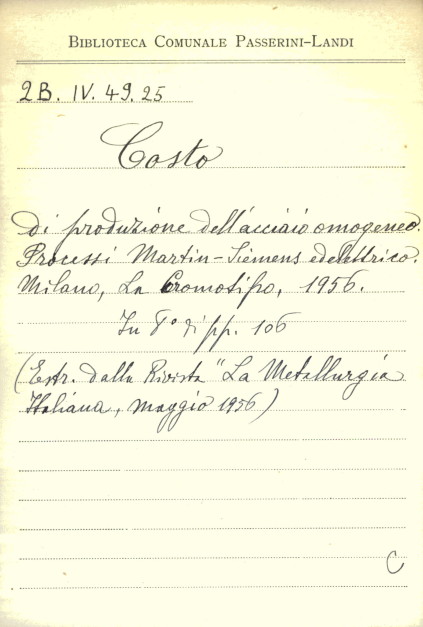 BIBLIOTECA COMUNALE PASSERINI-LANDI
2B. IV. 49. 25
Costo
di produzione dell'acciaio omogeneo.
Processi Martin-Siemens ed elettrico.
Milano, La Cromotipo, 1956.
In 8° di pp. 106
(Estr. dalla Rivista "La Metallurgia
Italiana, maggio 1956)
C